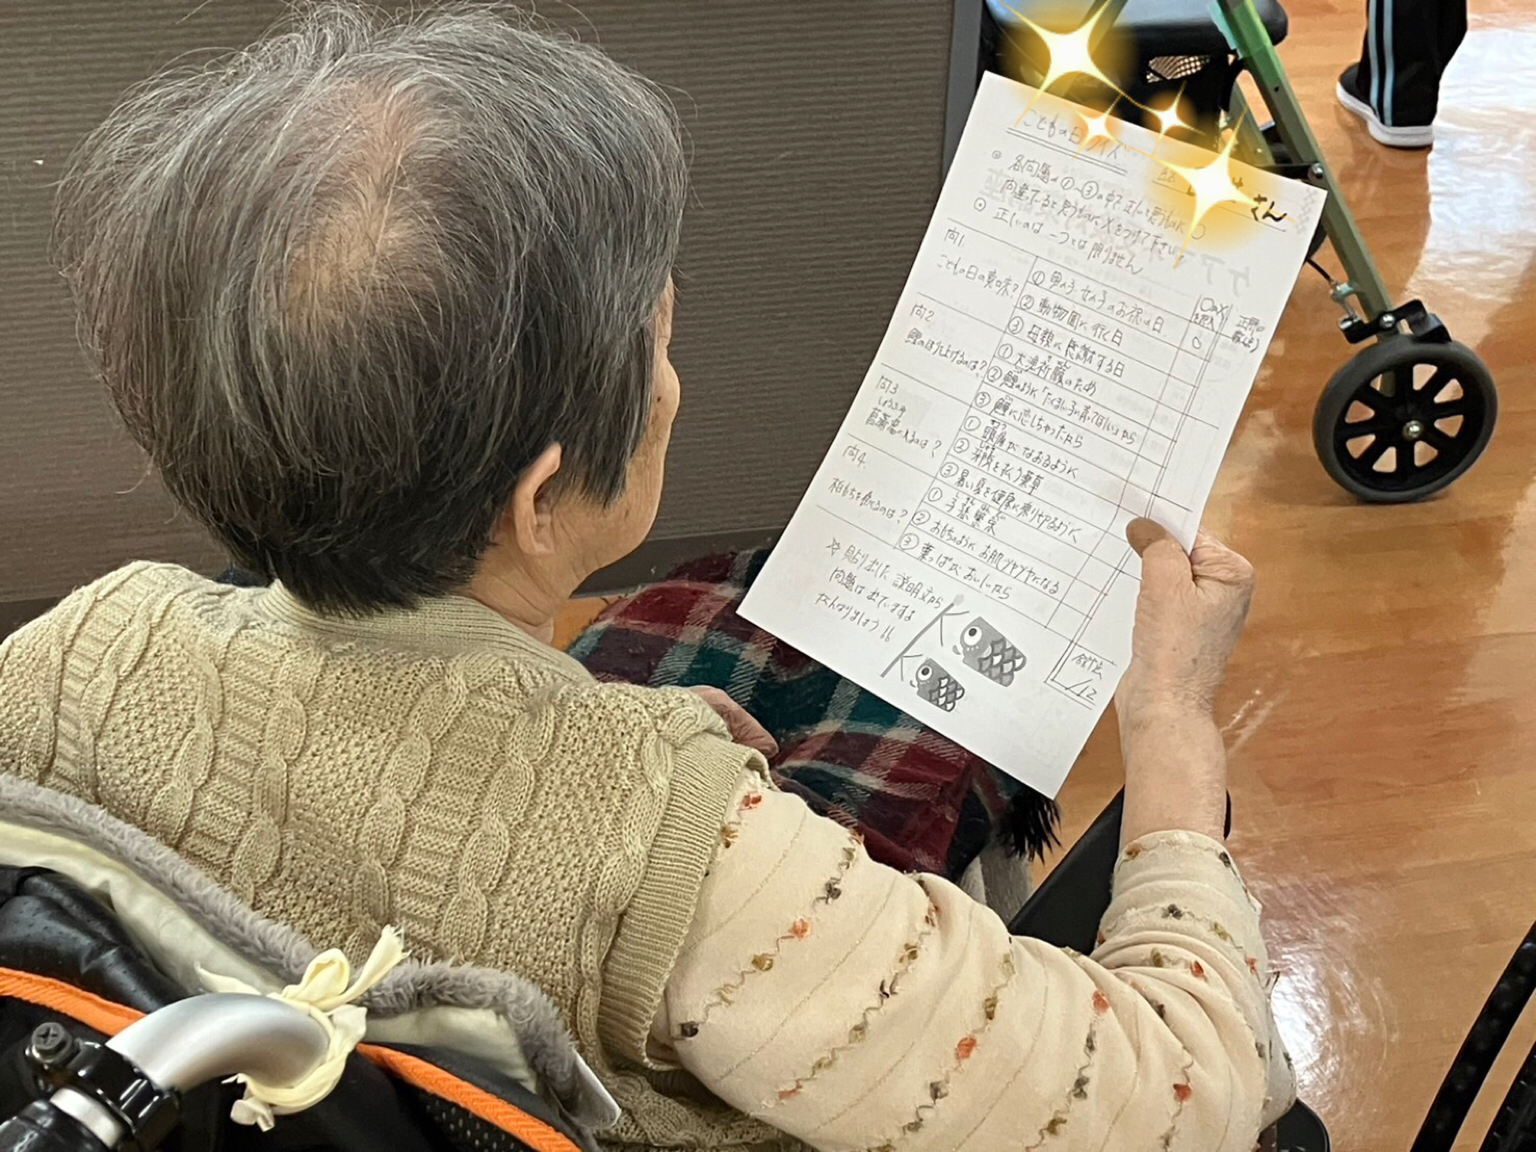 こどもの日クイズ
さん
◎ 各問題の①〜③の中で正しいと思うものに○
間違っていると思うものに×をつけて下さい
◎ 正しいのは一つとは限りません
○or×
を記入
正解の数は?
問1.
こどもの日の意味?
① 男の子 女の子のお祝いの日
○
② 動物園に行く日
③ 母親に感謝する日
問2
鯉のぼり上げるのは?
① 大漁祈願のため
② 鯉のように「たくましい子に育ってほしい」から
③ 鯉に恋しちゃったから
問3
しょうぶゆ
菖蒲湯に入るのは?
① 頭痛がなおるように
② 邪気を払う薬草
③ 暑い夏を健康に乗り切るように
問4
柏もちを食べるのは?
① 子孫繁栄
② おもちのようにお肌ツヤツヤになる
③ 葉っぱがおいしいから
☆ 貼りました説明文から
問題は出ていますよ
がんばりましょう!!
合計点
/12